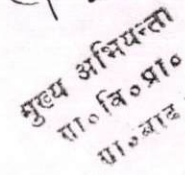 मुख्य अभियन्ता
गा० वि० प्रा०
गा० बाद